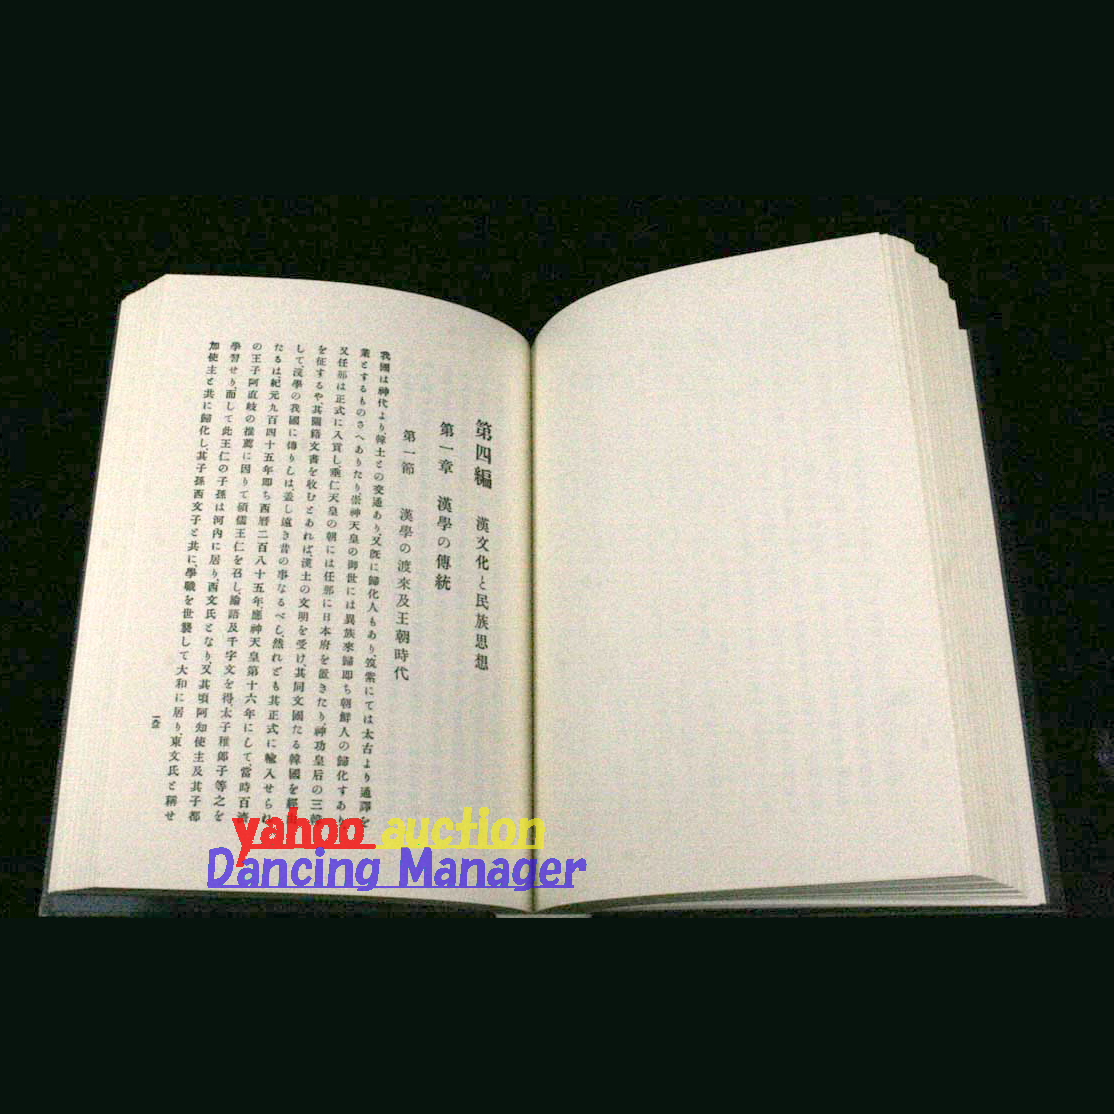 第四編　漢文化と民族思想
第一章　漢學の傳統
第一節　漢學の渡來及王朝時代
我國は神代より韓土との交通あり、又既に歸化人もあり、筑紫にては太古より通譯を
業とするものさへありたり、崇神天皇の御世には異族來歸卽ち朝鮮人の歸化すあり
又任那は正式に入貢し、垂仁天皇の朝には任那に日本府を置きたり、神功皇后の三韓
を征するや、其圖籍文書を收むとあれば、漢土の文明を受け、其同文國たる韓國を經由
して、漢學の我國に傳りしは蓋し遠き昔の事なるべし、然れども其正式に輸入せられ
たるは、紀元九百四十五年卽ち西曆二百八十五年、應神天皇第十六年にして、當時百濟
の王子阿直岐の推薦に因りて碩儒王仁を召し、論語及千字文を得、太子稚郎子等之を
學習せり、而して此王仁の子孫は河內に居り、西文氏となり、又其頃阿知使主及其子都
加使主と共に歸化し、其子孫西文子と共に、學職を世襲して大和に居り、東文氏と稱せ
yahoo auction
Dancing Manager